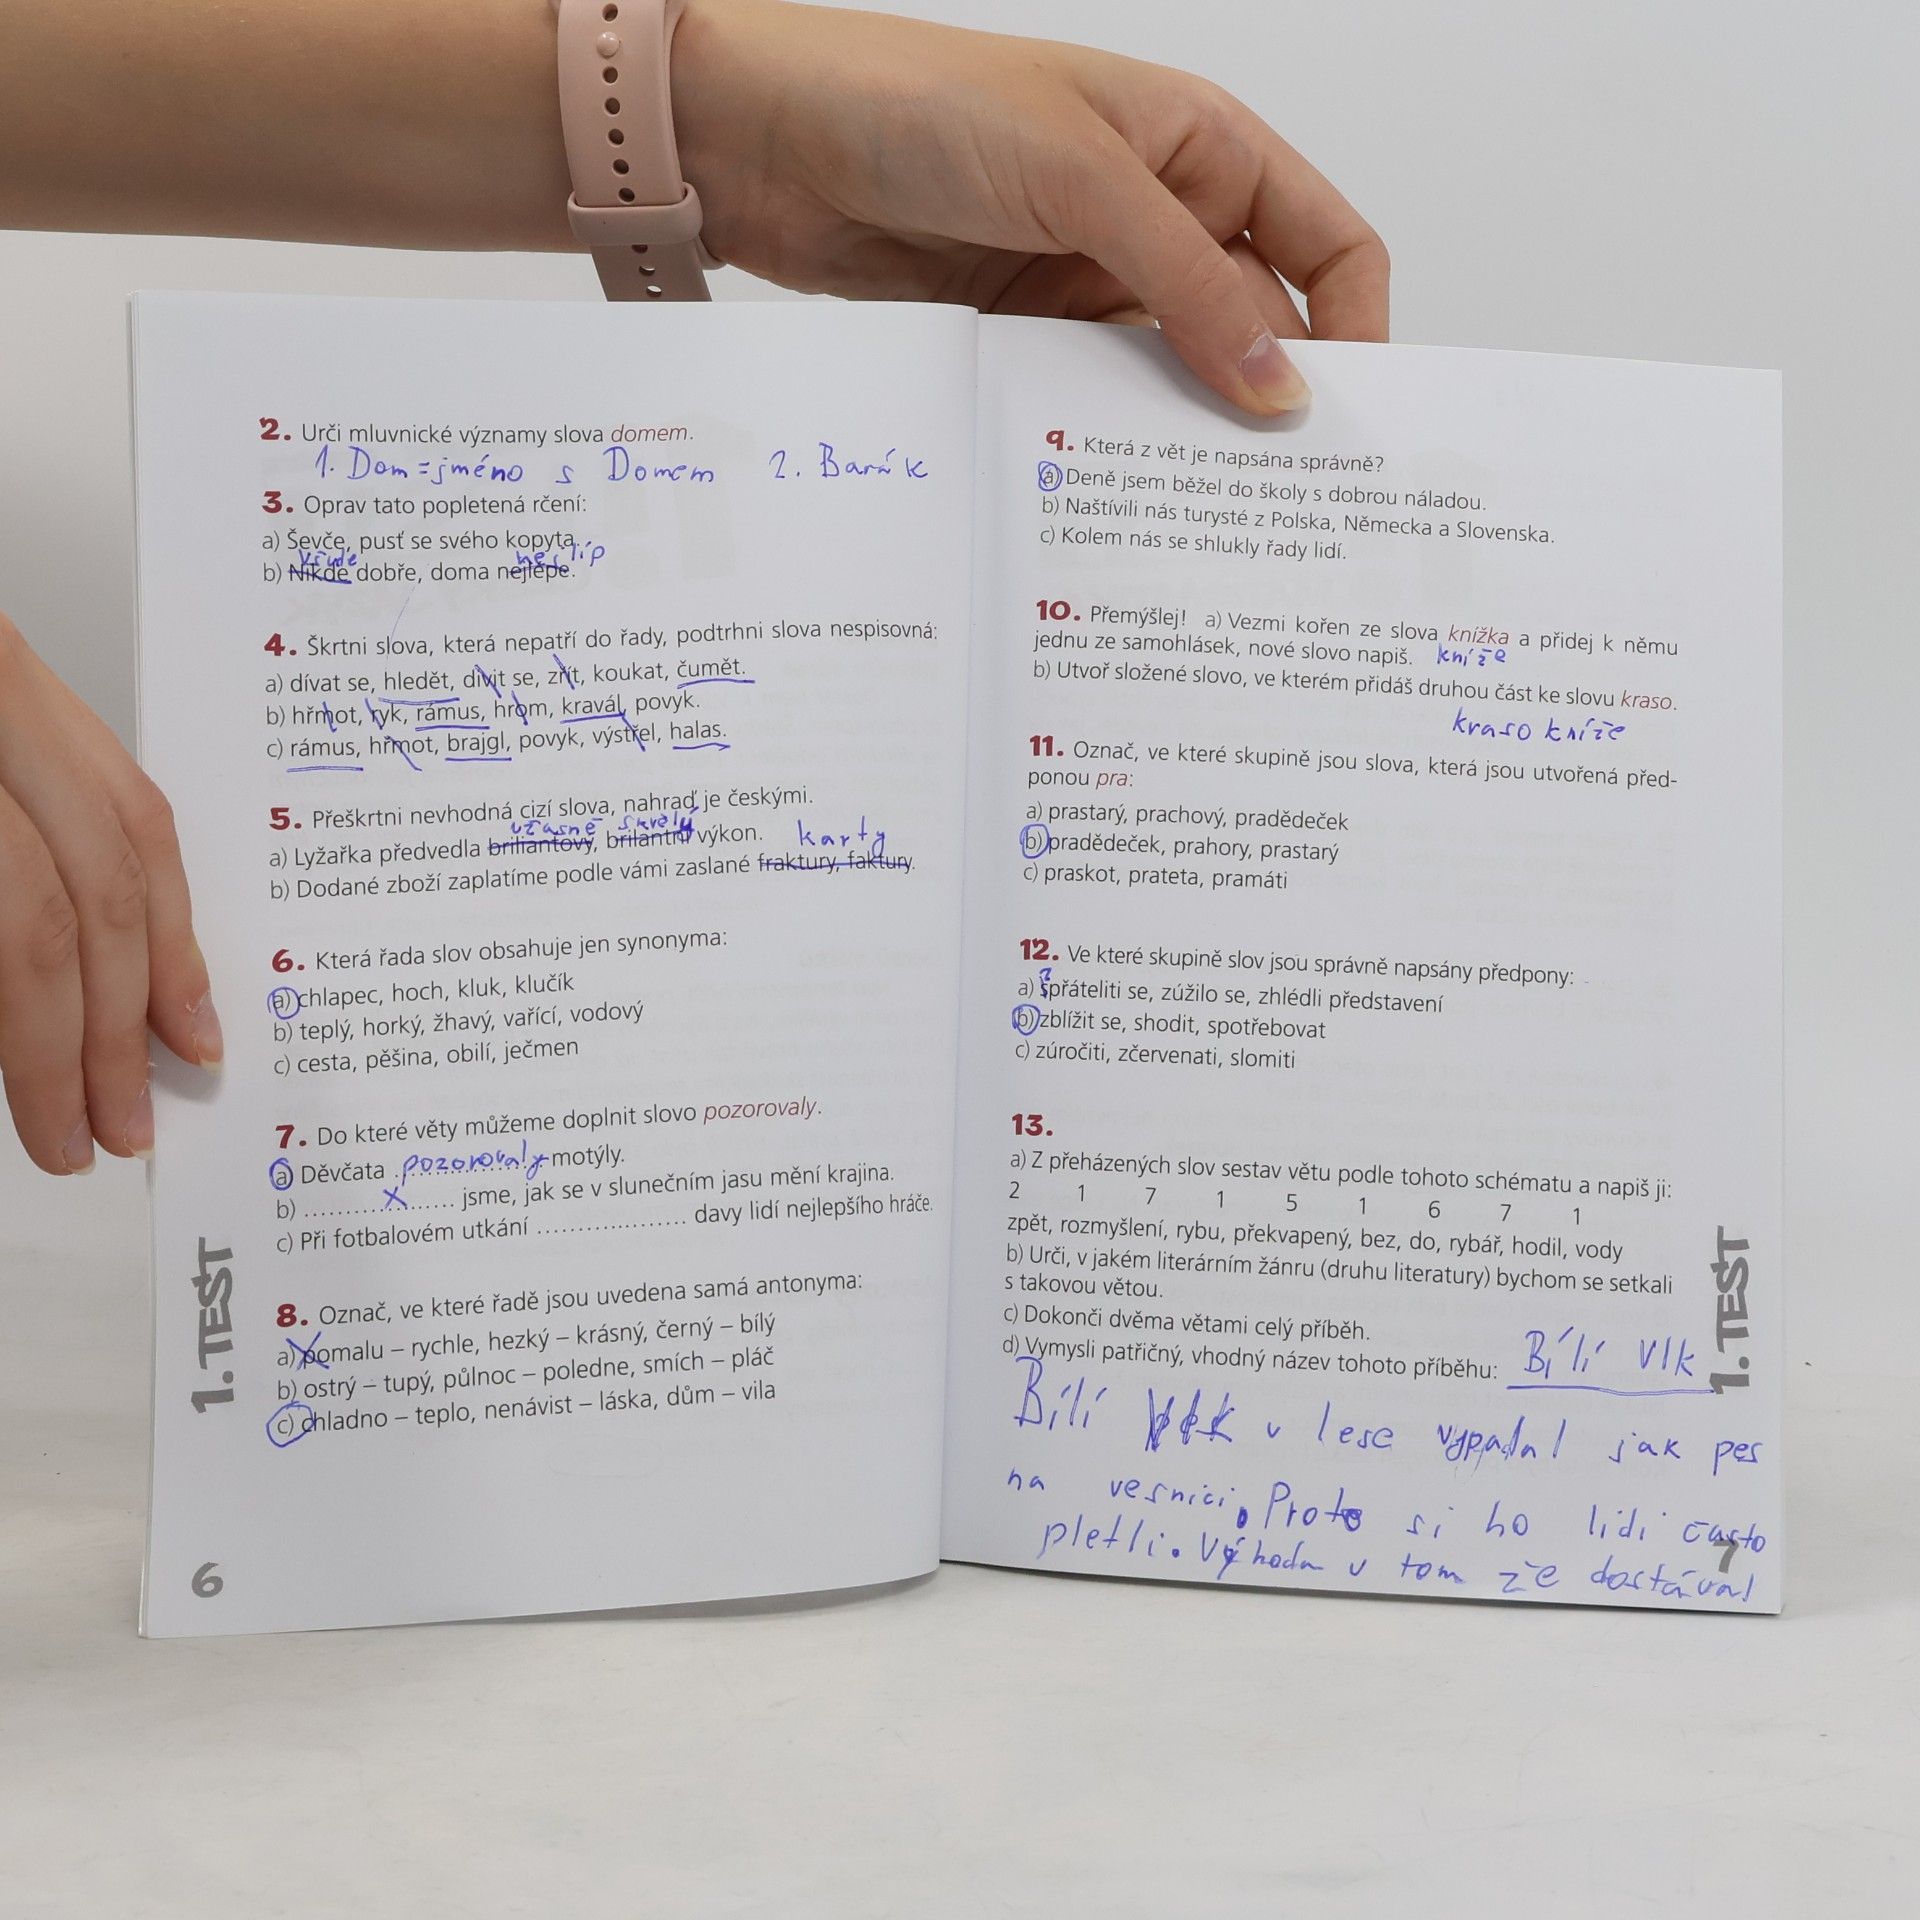 2. Urči mluvnické významy slova domem.
1. Dom = jméno s Domem 2. Barák
3. Oprav tato popletená rčení:
a) Ševče, pusť se svého kopyta.
všude nejlíp
b) Nikde dobře, doma nejlépe.
4. Škrtni slova, která nepatří do řady, podtrhni slova nespisovná:
a) dívat se, hledět, divit se, zřít, koukat, čumět.
b) hřmot, ryk, rámus, hrom, kravál, povyk.
c) rámus, hřmot, brajgl, povyk, výstřel, halas.
5. Přeškrtni nevhodná cizí slova, nahraď je českými.
úžasně skvělý
a) Lyžařka předvedla briliantový, brilantní výkon. karty
b) Dodané zboží zaplatíme podle vámi zaslané fraktury, faktury.
6. Která řada slov obsahuje jen synonyma:
a) chlapec, hoch, kluk, klučík
b) teplý, horký, žhavý, vařící, vodový
c) cesta, pěšina, obilí, ječmen
7. Do které věty můžeme doplnit slovo pozorovaly.
a) Děvčata pozorovaly motýly.
b) ........x........ jsme, jak se v slunečním jasu mění krajina.
c) Při fotbalovém utkání .................... davy lidí nejlepšího hráče.
8. Označ, ve které řadě jsou uvedena samá antonyma:
a) pomalu – rychle, hezký – krásný, černý – bílý
b) ostrý – tupý, půlnoc – poledne, smích – pláč
c) chladno – teplo, nenávist – láska, dům – vila
1. TEST
6
9. Která z vět je napsána správně?
a) Deně jsem běžel do školy s dobrou náladou.
b) Naštívili nás turysté z Polska, Německa a Slovenska.
c) Kolem nás se shlukly řady lidí.
10. Přemýšlej! a) Vezmi kořen ze slova knížka a přidej k němu
jednu ze samohlásek, nové slovo napiš. kníže
b) Utvoř složené slovo, ve kterém přidáš druhou část ke slovu kraso.
kraso kníže
11. Označ, ve které skupině jsou slova, která jsou utvořená před-
ponou pra:
a) prastarý, prachový, pradědeček
b) pradědeček, prahory, prastarý
c) praskot, prateta, pramáti
12. Ve které skupině slov jsou správně napsány předpony:
a) spřáteliti se, zúžilo se, zhlédli představení
b) zblížit se, shodit, spotřebovat
c) zúročiti, zčervenati, slomiti
13.
a) Z přeházených slov sestav větu podle tohoto schématu a napiš ji:
2 1 7 1 5 1 6 7 1
zpět, rozmyšlení, rybu, překvapený, bez, do, rybář, hodil, vody
b) Urči, v jakém literárním žánru (druhu literatury) bychom se setkali
s takovou větou.
c) Dokonči dvěma větami celý příběh.
d) Vymysli patřičný, vhodný název tohoto příběhu: Bílí Vlk
Bílí Vlk v lese vypadal jak pes
na vesnici. Proto si ho lidi často
pletli. Výhoda v tom že dostával
1. TEST
7